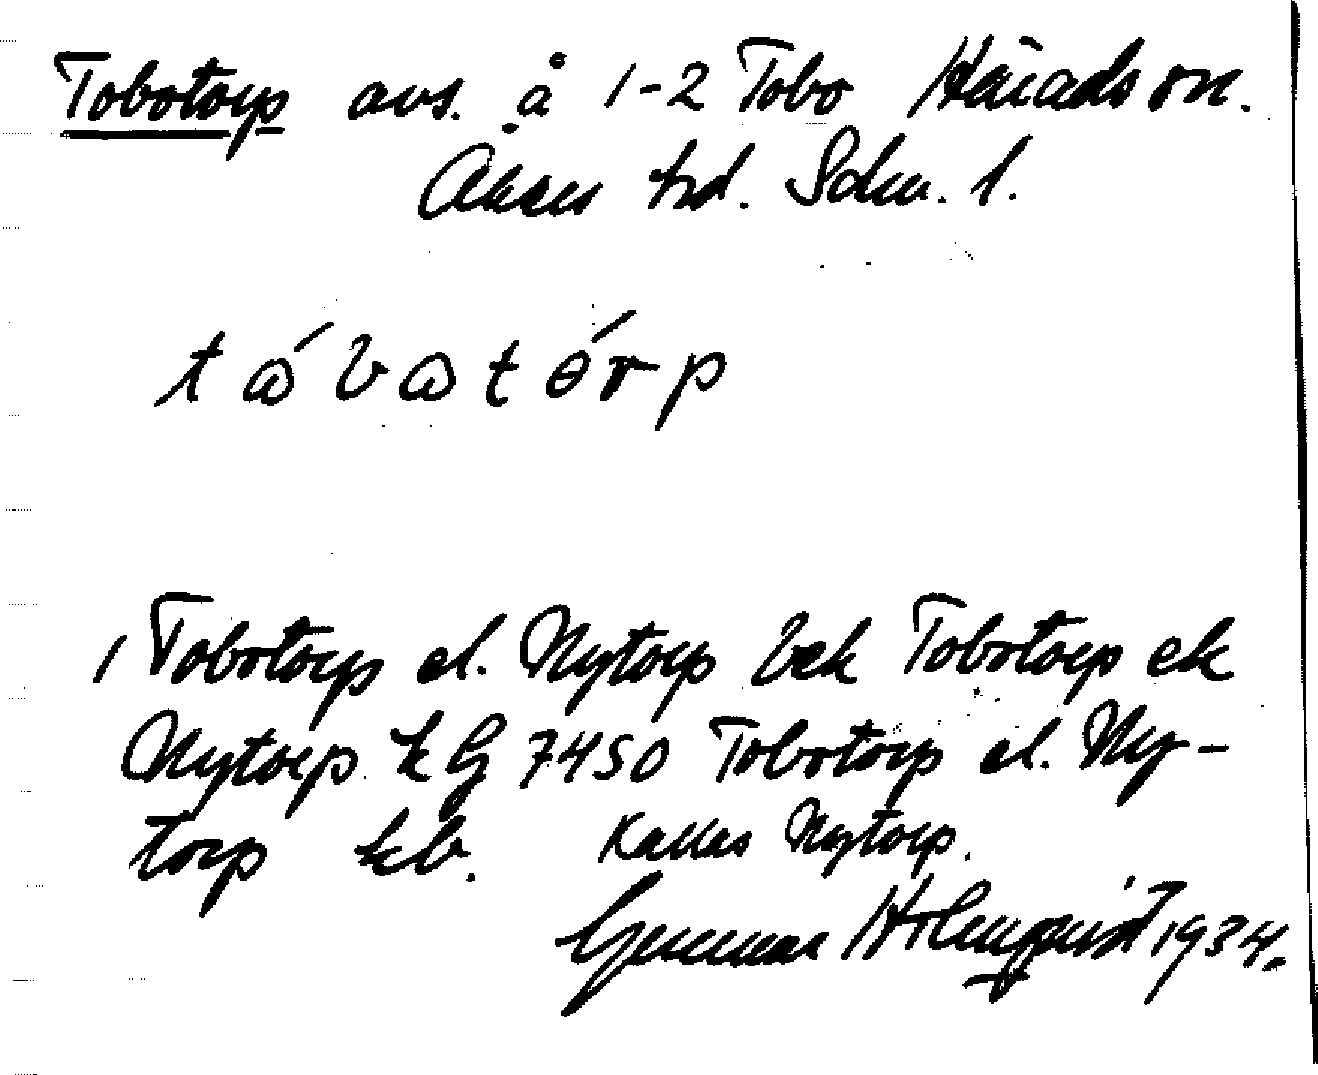 Tobotorp avs. å 1-2 Tobo Härads sn.
Åkers hd. Sdm. l.
tɷ́bɷtɵ́rp
1 Tobotorp el. Nytorp bek Tobotorp ek
Nytorp k G 7450 Tobotorp el. Ny-
torp kb. Kallas Nytorp.
Gunnar Holmquist 1934.